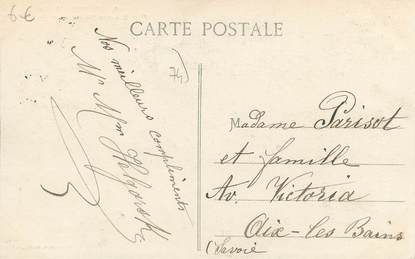 6 €
CARTE POSTALE
74
Nos meilleurs compliments
Mr Mme
Madame Parisot
et famille
Av. Victoria
Aix-les Bains
(Savoie